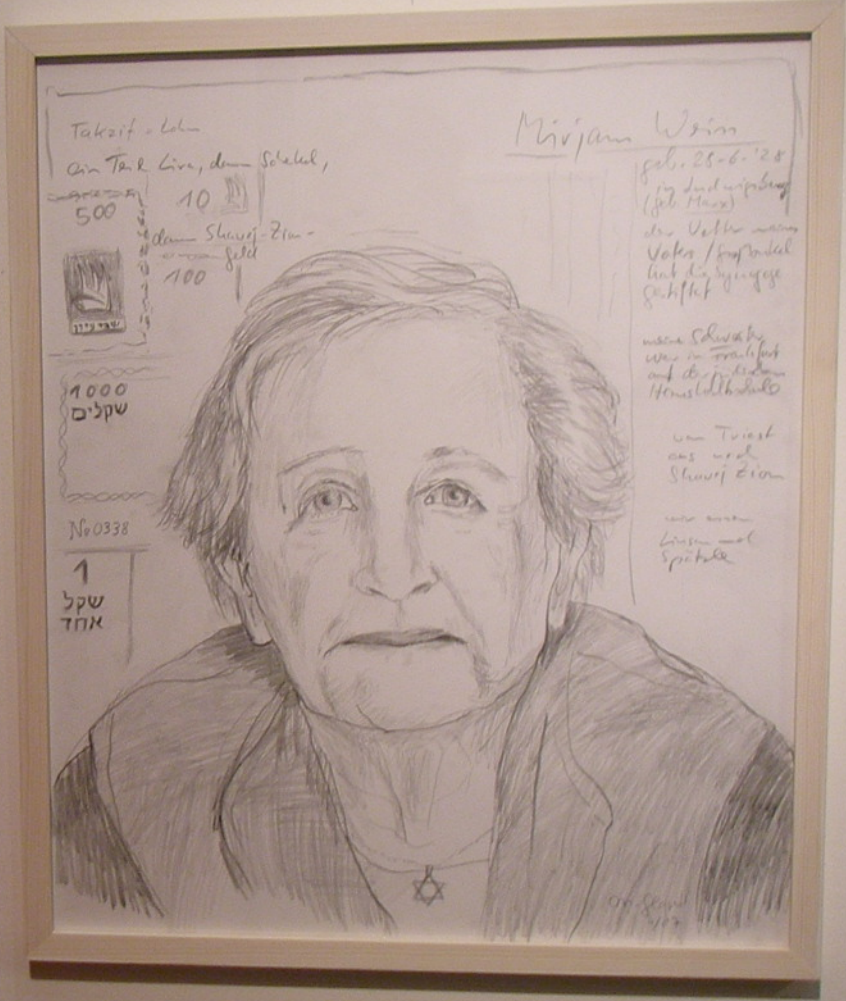 Takzif - Lohn
ein Teil Lira, dann Schekel,
500
10
dann Shavej-Zion-
geld
100
שבי ציון
1000
שקלים
No 0338
1
שקל
אחד
Mirjam Weiss
geb. 28-6-'28
in Ludwigsburg
(geb. Marx)
der Vetter meines
Vaters / Großonkel
hat die Synagoge
gestiftet
meine Schwester
war in Frankfurt
auf der jüdischen
Haushaltschule
von Triest
aus nach
Shavej Zion
Linsen und
Spätzle